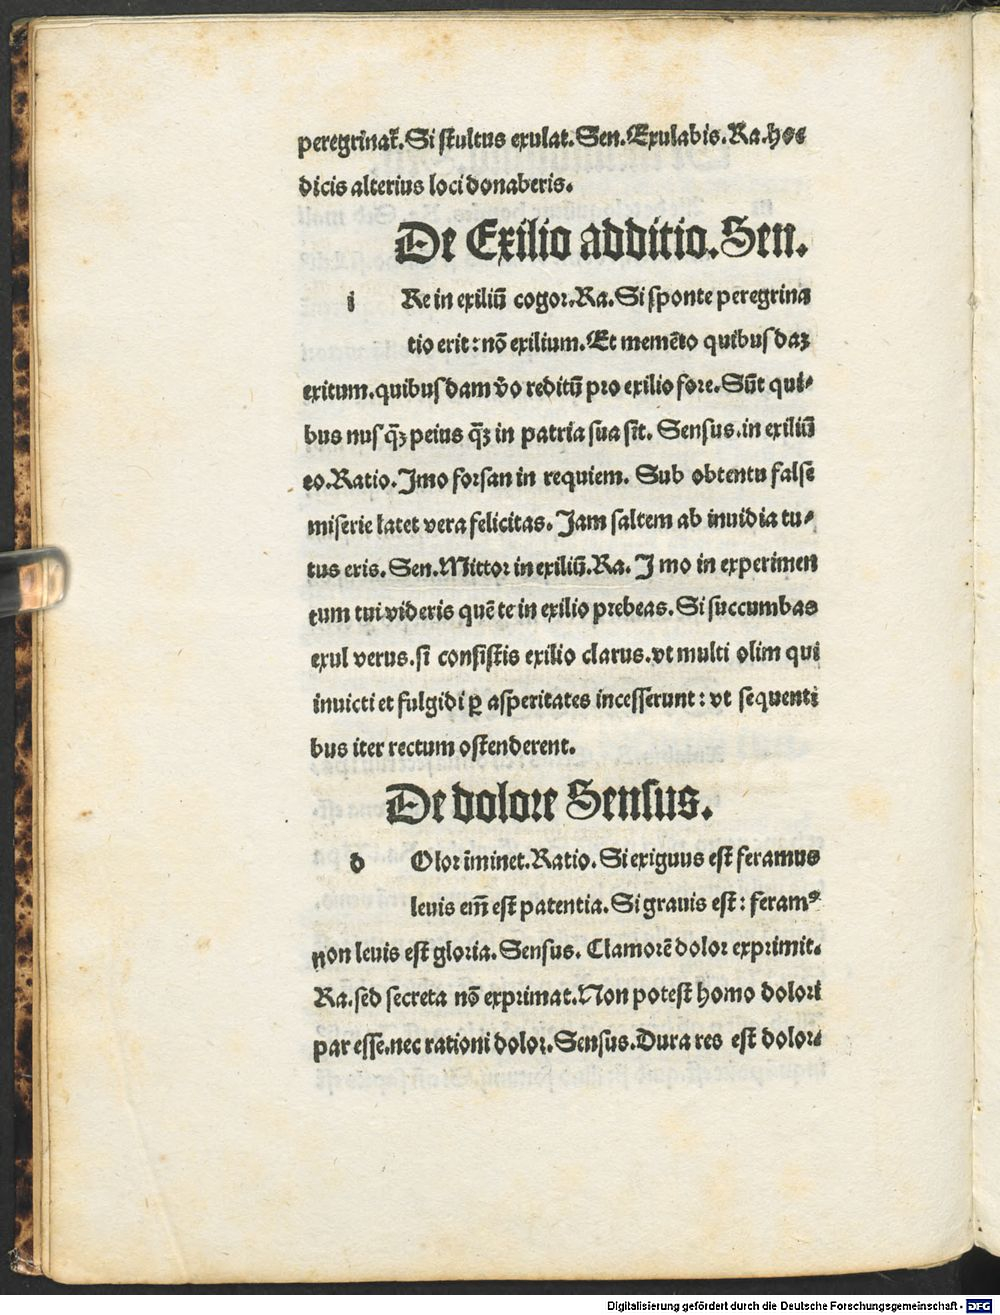 peregrinat᷑. Si stultus exulat. Sen. Exulabis. Ra. hoc
dicis alterius loci donaberis.
De Exilio additio. Sen.
i Re in exiliū cogor. Ra. Si sponte peregrina
tio erit: nō exilium. Et memēto quibusdaꝫ
exitum. quibusdam v̄o reditū pro exilio fore. Sūt qui⸗
bus nusq̄ꝫ peius q̄ꝫ in patria sua sit. Sensus. in exiliū
eo. Ratio. Imo forsan in requiem. Sub obtentu false
miserie latet vera felicitas. Jam saltem ab inuidia tu⸗
tus eris. Sen. Mittor in exiliū. Ra. Imo in experimen
tum tui videris quē te in exilio prebeas. Si succumbas
exul verus. si consistis exilio clarus. vt multi olim qui
inuicti et fulgidi ꝑ asperitates incesserunt: vt sequenti
bus iter rectum ostenderent.
De dolore Sensus.
d Olor īminet. Ratio. Si exiguus est feramus
leuis em̄ est patentia. Si grauis est: feramꝰ
non leuis est gloria. Sensus. Clamorē dolor exprimit.
Ra. sed secreta nō exprimat. Non potest homo dolori
par esse. nec rationi dolor. Sensus. Dura res est dolor⸗
Digitalisierung gefördert durch die Deutsche Forschungsgemeinschaft - DFG